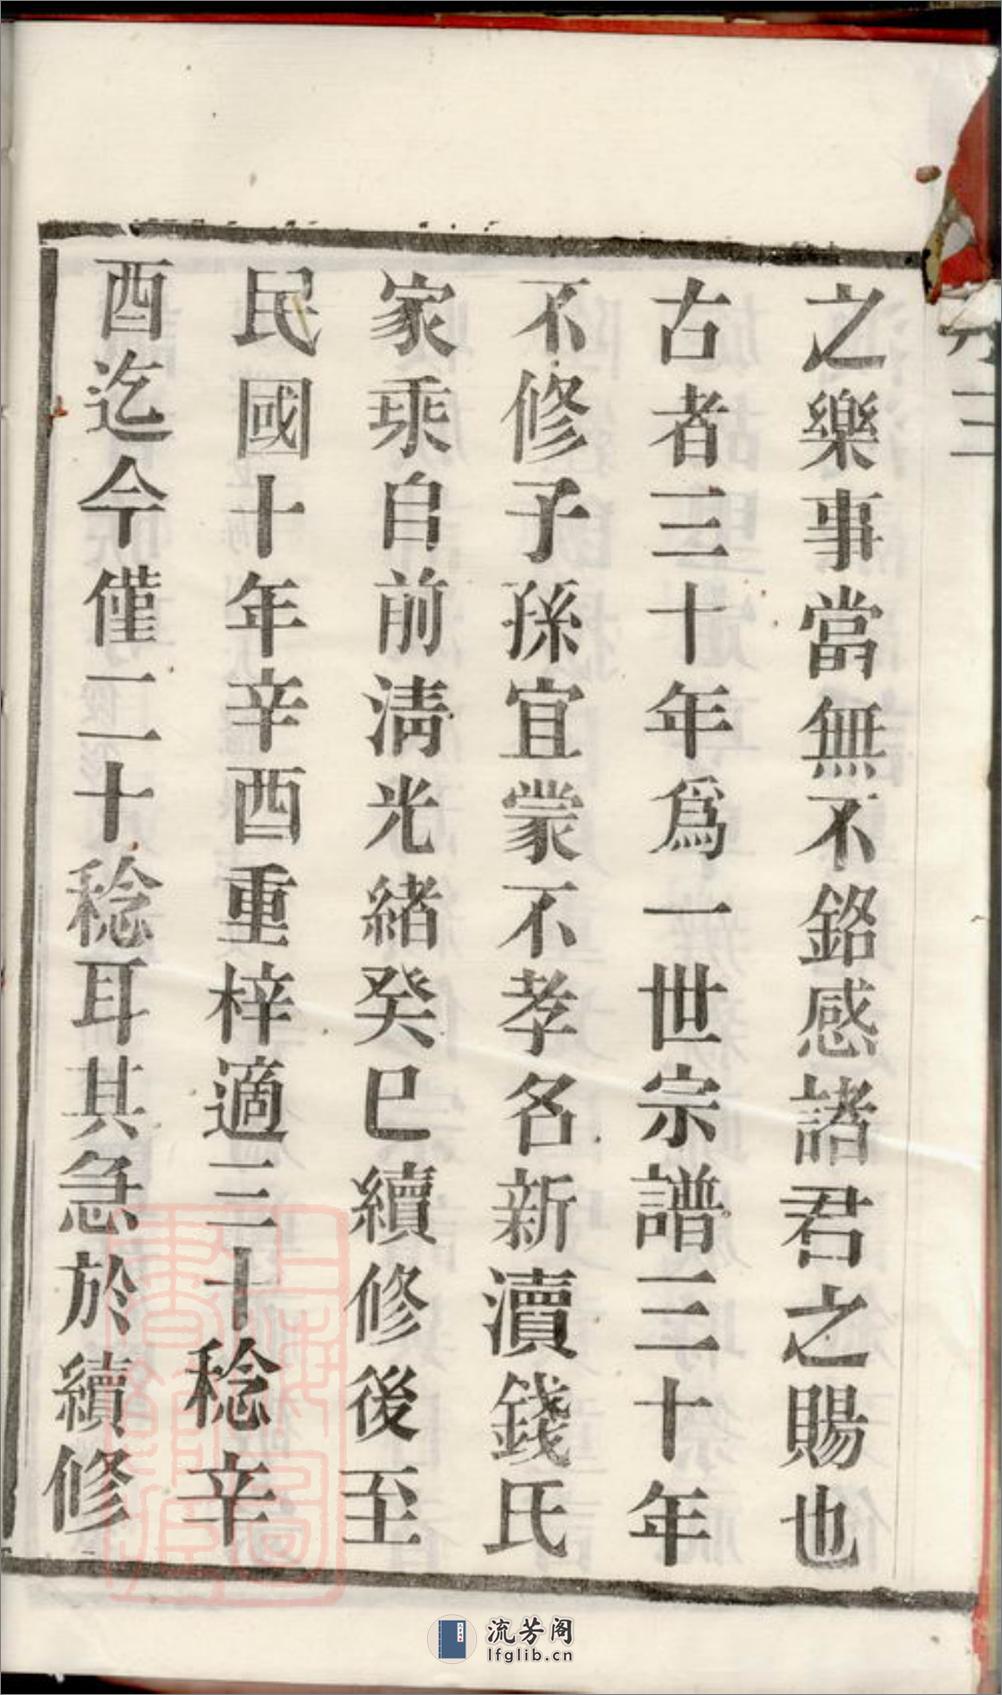 之樂事當無不銘感諸君之賜也
古者三十年爲一世宗譜三十年
不修子孫宜蒙不孝名新瀆錢氏
家乘自前淸光緒癸巳續修後至
民國十年辛酉重梓適三十稔辛
酉迄今僅二十稔耳其急於續修
流芳阁
lfglib.cn